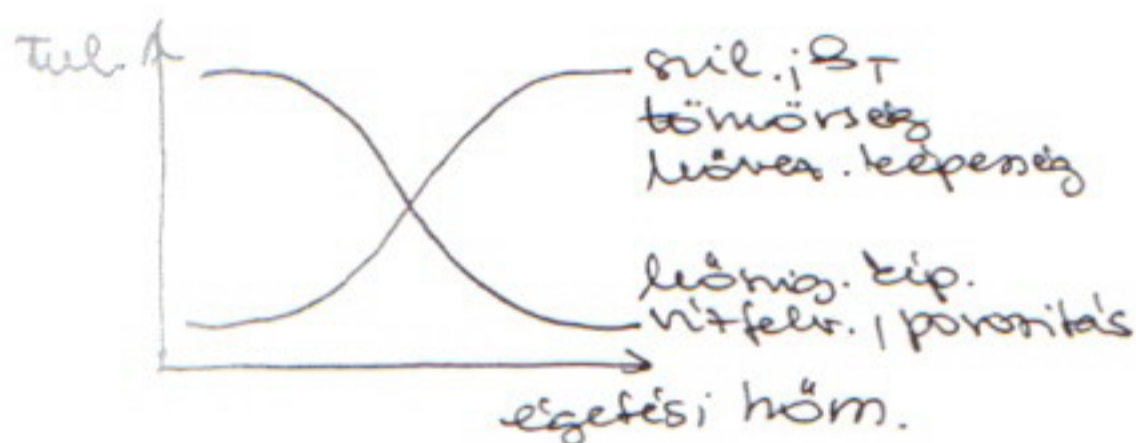 Tul.
szil. ; ρT
tömörség
hővez. képesség
hőszig. kép.
vízfelv. , porozitás
égetési hőm.